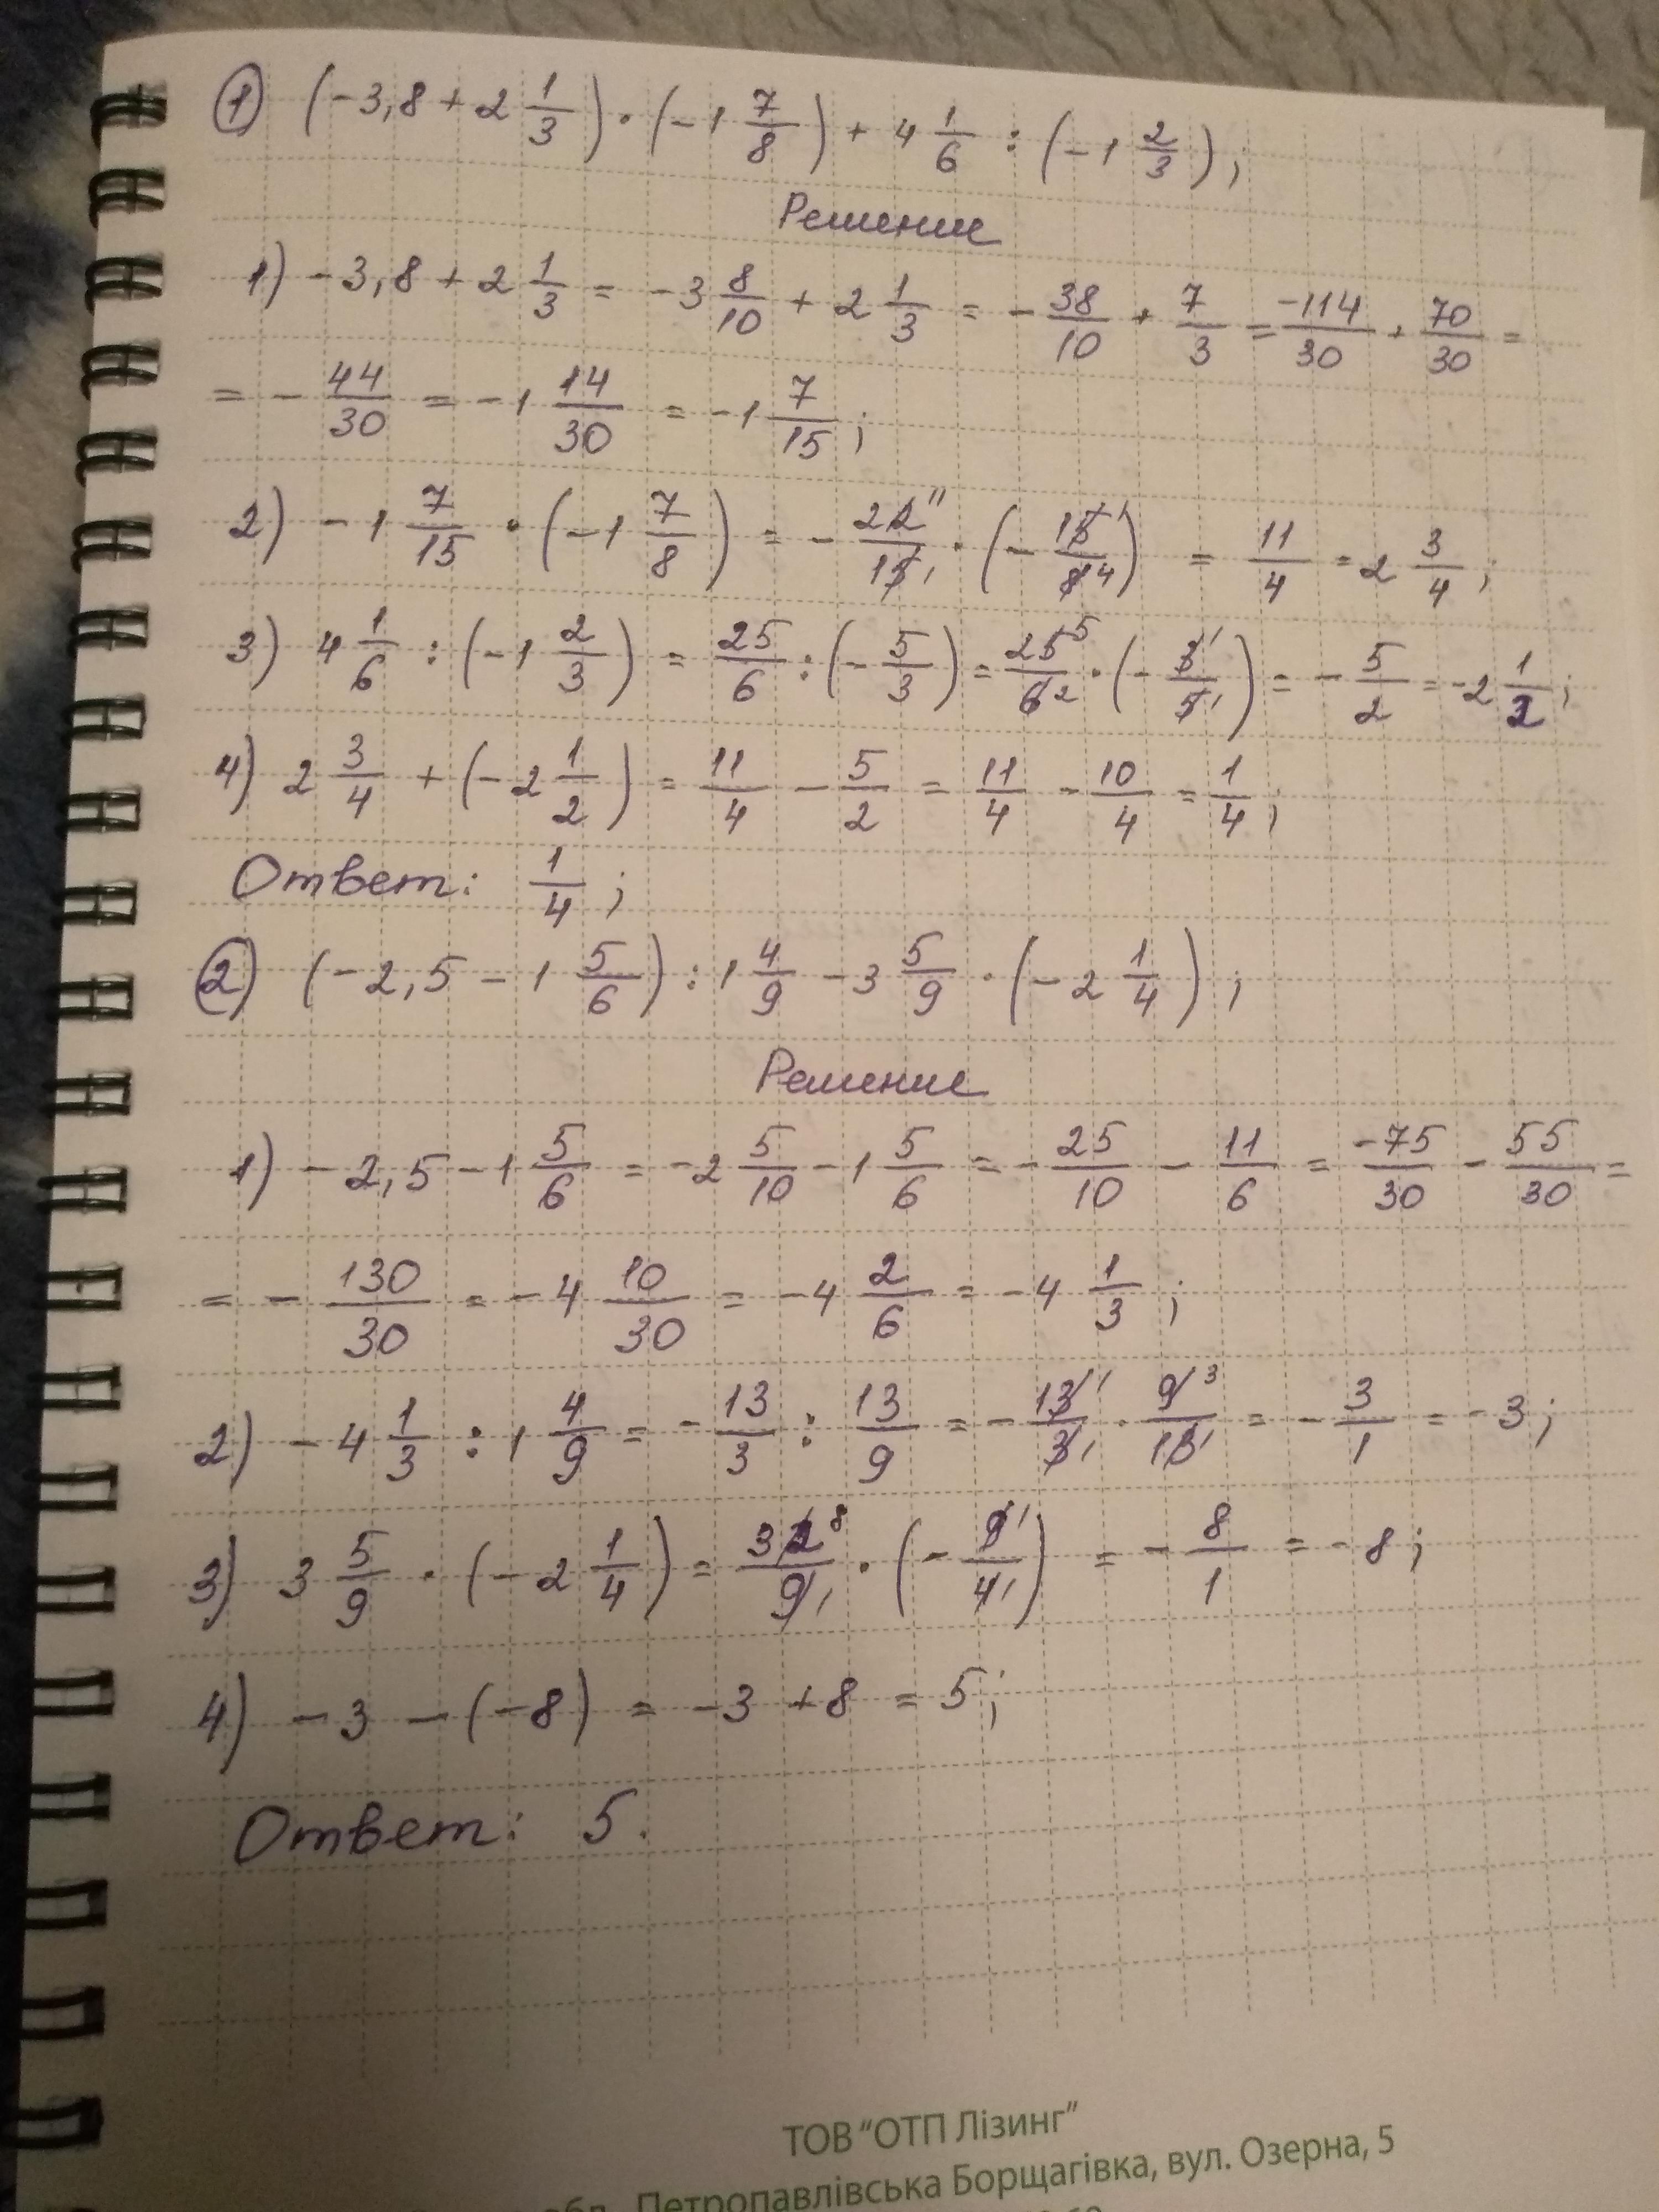 ① (-3,8 + 2 1/3) · (-1 7/8) + 4 1/6 : (-1 2/3);
Решение
1) -3,8 + 2 1/3 = -3 8/10 + 2 1/3 = - 38/10 + 7/3 = -114/30 + 70/30 =
= - 44/30 = -1 14/30 = -1 7/15;
2) -1 7/15 · (-1 7/8) = - 22 11/15 1 · (- 15 1/8 4) = 11/4 = 2 3/4;
3) 4 1/6 : (-1 2/3) = 25/6 : (- 5/3) = 25 5/6 2 · (- 3 1/5 1) = - 5/2 = -2 1/2;
4) 2 3/4 + (-2 1/2) = 11/4 - 5/2 = 11/4 - 10/4 = 1/4;
Ответ: 1/4;
② (-2,5 - 1 5/6) : 1 4/9 - 3 5/9 · (-2 1/4);
Решение
1) -2,5 - 1 5/6 = -2 5/10 - 1 5/6 = - 25/10 - 11/6 = -75/30 - 55/30 =
= - 130/30 = -4 10/30 = -4 2/6 = -4 1/3;
2) -4 1/3 : 1 4/9 = - 13/3 : 13/9 = - 13 1/3 1 · 9 3/13 1 = - 3/1 = -3;
3) 3 5/9 · (-2 1/4) = 32 8/9 1 · (- 9 1/4 1) = - 8/1 = -8;
4) -3 - (-8) = -3 + 8 = 5;
Ответ: 5.
ТОВ "ОТП Лізинг"
Петропавлівська Борщагівка, вул. Озерна, 5